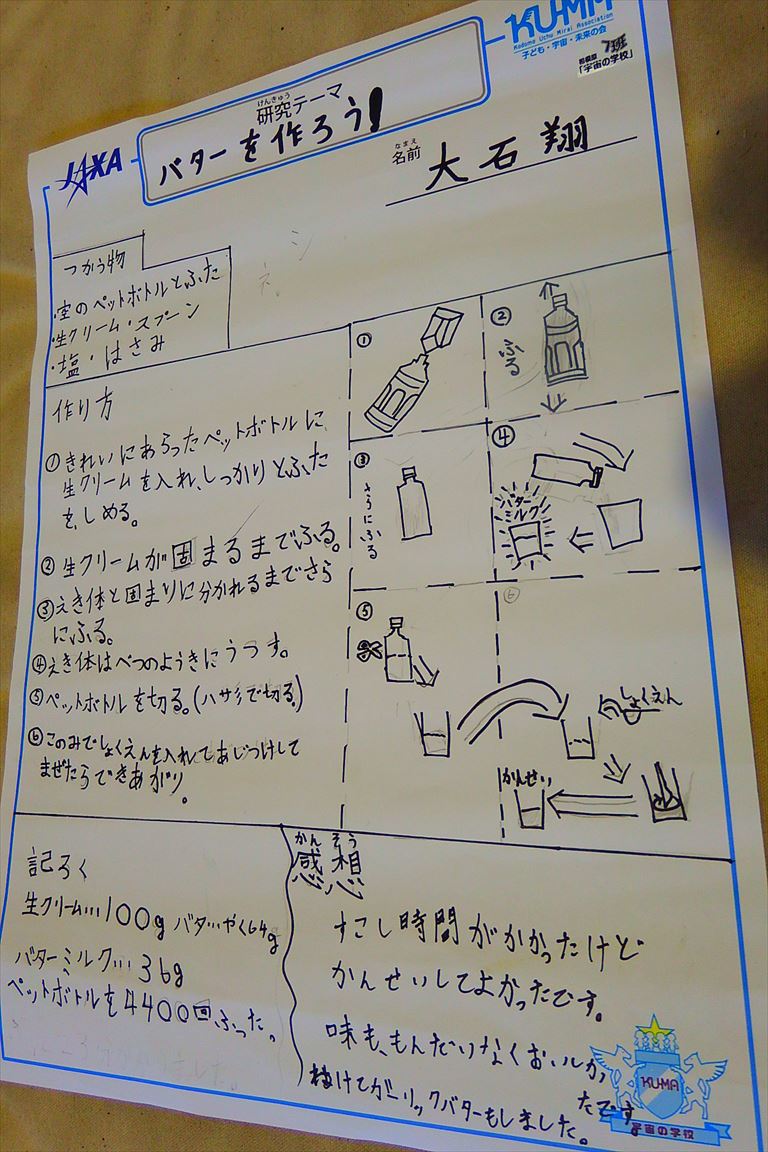 KU-MA
Kodomo Uchu Mirai Association
子ども・宇宙・未来の会
相模原 7班
「宇宙の学校」
JAXA
けんきゅう
研究テーマ
バターを作ろう!
なまえ
名前 大石翔
つかう物
・空のペットボトルとふた
・生クリーム・スプーン
・塩・はさみ
作り方
①きれいにあらったペットボトルに
生クリームを入れ、しっかりとふた
を、しめる。
②生クリームが固まるまでふる。
③えき体と固まりに分かれるまでさら
にふる。
④えき体はべつのようきにうつす。
⑤ペットボトルを切る。(ハサミで切る。)
⑥このみでしょくえんを入れてあじつけして
まぜたらできあがり。
①
②
ふる
③
さらにふる
④
バター
ミルク
⑤
⑥
しょくえん
かんせい
記ろく
生クリーム…100g バター…やく64g
バターミルク…36g
ペットボトルを4400回ふった。
かんそう
感想
すこし時間がかかったけど
かんせいしてよかったです。
味も、もんだいなくおいしかっ
たです。
ガーリックバターもしました。
KU-MA
宇宙の学校